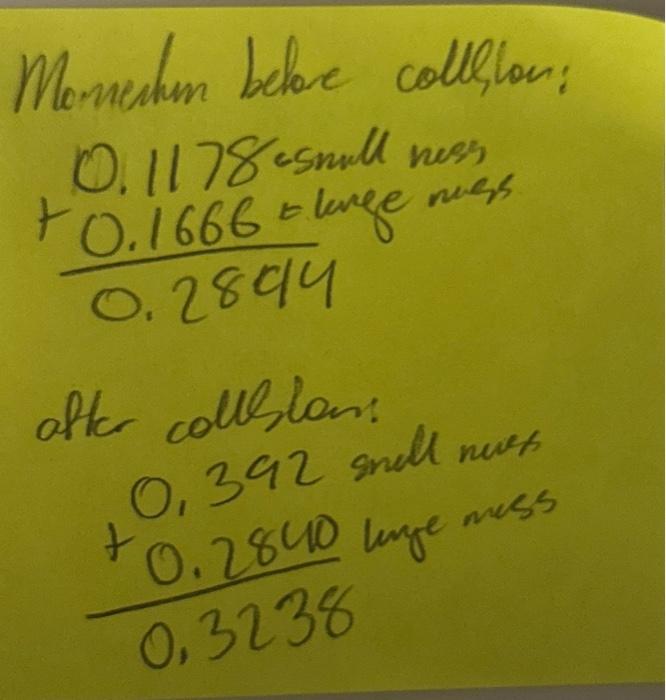 Momentum before collision:
0.1178 = small mass
+ 0.1666 = large mass
0.2844
after collision:
0.392 small mass
+ 0.2840 large mass
0.3238